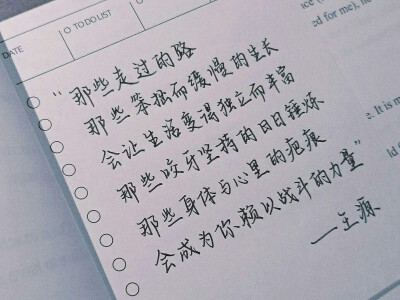 DATE
TO DO LIST
"那些走过的路
那些笨拙而缓慢的生长
会让生活变得独立而丰富
那些咬牙坚持的日日锤炼
那些身体与心里的疤痕
会成为你赖以战斗的力量"
——王源
for me), he
e. It is m